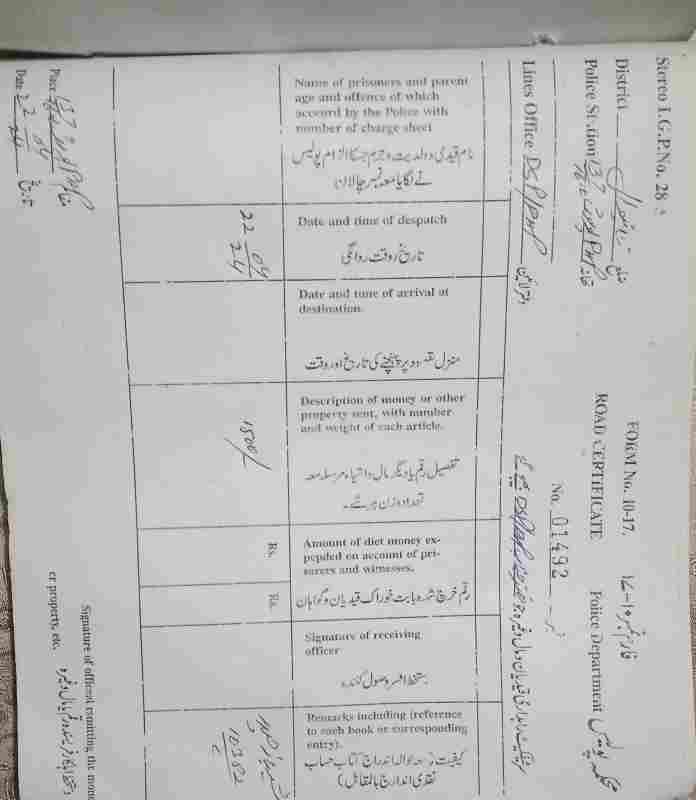 Stereo I.G.P.No. 28
FORM No. 10-17.
فارم نمبر ۱۰-۱۷
District
ضلع
ROAD CERTIFICATE
Police Department
محکمہ پولیس
Police Station
تھانہ
No. 01492
نمبر
Lines Office
دفتر لائین
Name of prisoners and parent
age and offence of which
accoerd by the Police with
number of charge sheet
نام قیدی و ولدیت و جرم جسکا الزام پولیس
نے لگایا معہ نمبر چالان
Date and time of despatch
تاریخ و وقت روانگی
22 09
24
Date and tune of arrival at
destination.
منزل مقصود پر پہنچنے کی تاریخ اور وقت
Description of money or other
property sent, with number
and weight of each article.
تفصیل رقم یا دیگر مال و اشیاء مرسلہ معہ
تعداد و وزن ہر شے۔
1500/
Amount of diet money ex-
pepded on account of pri-
sorers and witnesses.
رقم خرچ شدہ بابت خوراک قیدیان و گواہان
Rs.
Rs.
Signature of receiving
officer
دستخط افسر وصول کنندہ
Remarks including (reference
to each book or corresponding
entry).
کیفیت (معہ حوالہ اندراج کتاب حساب
نقدی اندارج بالمقابل)
Place
مقام
Date 22 09
24
تاریخ
Signature of officent remitting the mone
er property, etc.